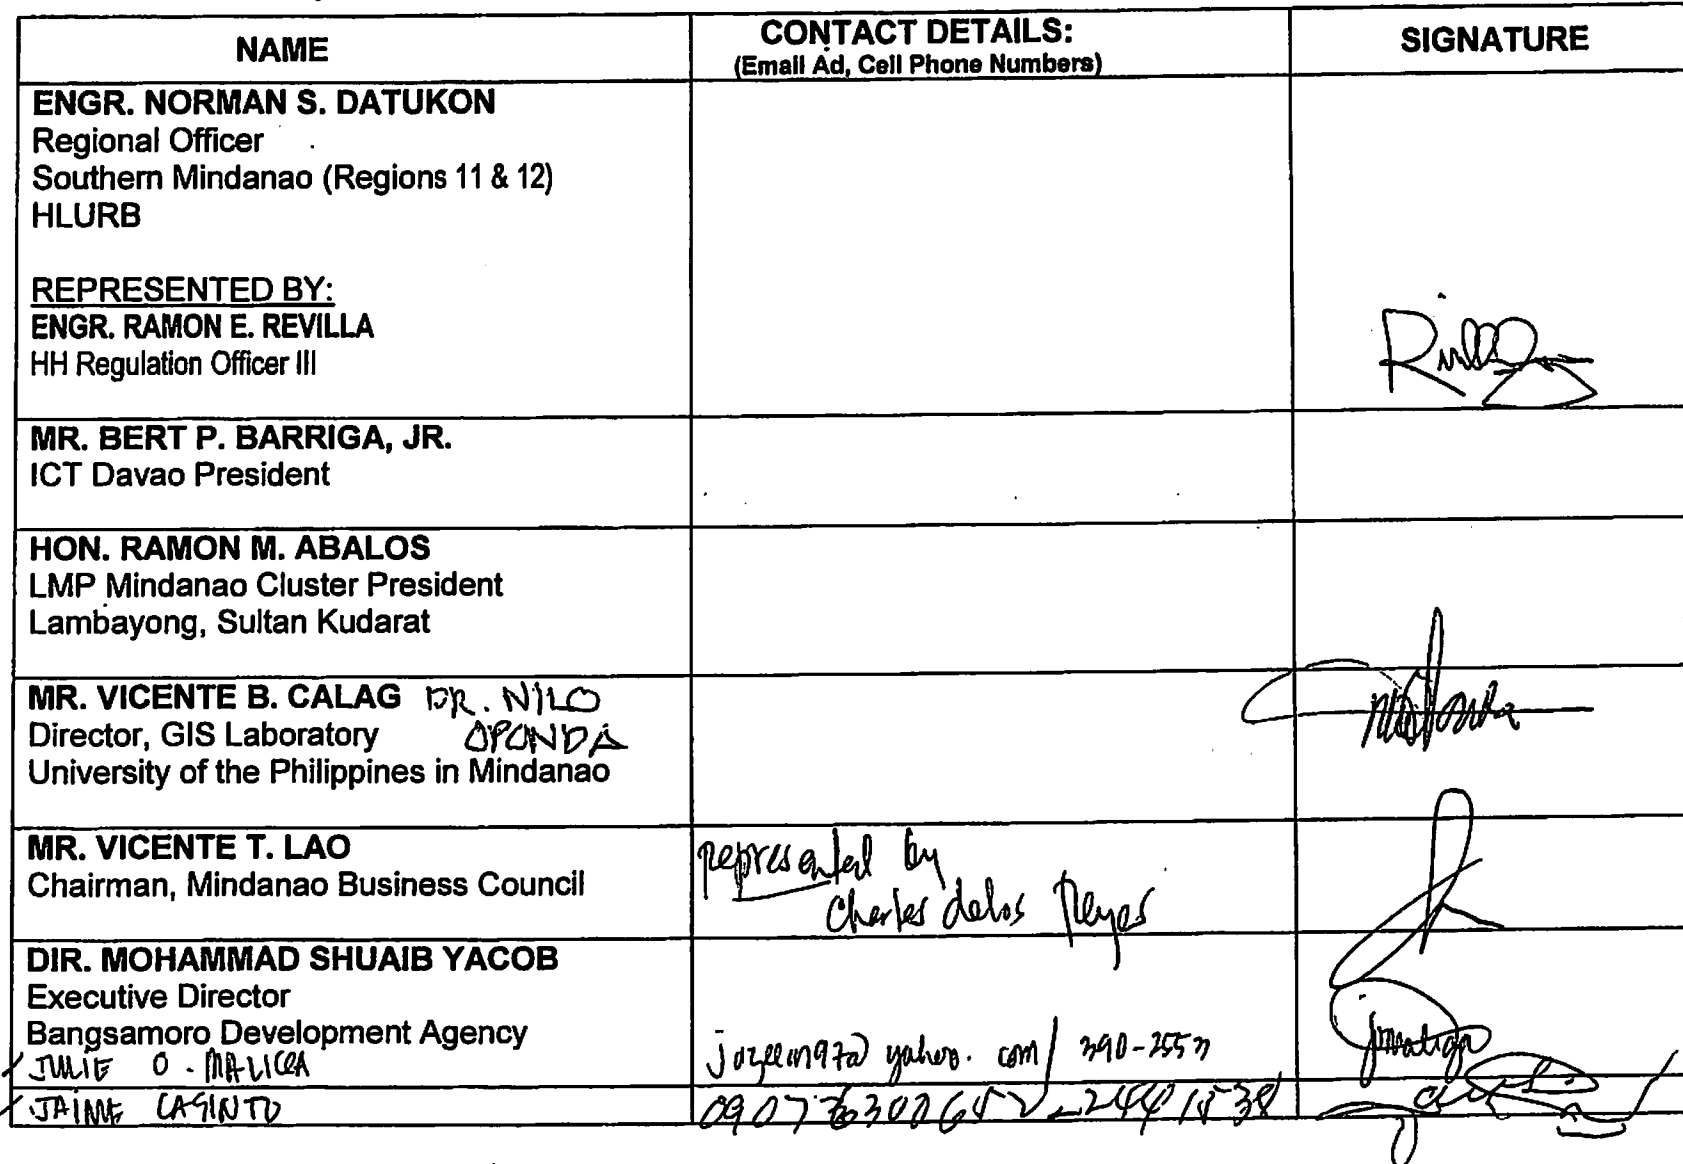 NAME
CONTACT DETAILS:
(Email Ad, Cell Phone Numbers)
SIGNATURE
ENGR. NORMAN S. DATUKON
Regional Officer
Southern Mindanao (Regions 11 & 12)
HLURB
REPRESENTED BY:
ENGR. RAMON E. REVILLA
HH Regulation Officer III
MR. BERT P. BARRIGA, JR.
ICT Davao President
HON. RAMON M. ABALOS
LMP Mindanao Cluster President
Lambayong, Sultan Kudarat
MR. VICENTE B. CALAG DR. NILO
Director, GIS Laboratory OPONDA
University of the Philippines in Mindanao
MR. VICENTE T. LAO
Chairman, Mindanao Business Council
represented by
Charles delos Reyes
DIR. MOHAMMAD SHUAIB YACOB
Executive Director
Bangsamoro Development Agency
JULIE O.
yahoo.com /
JAIME